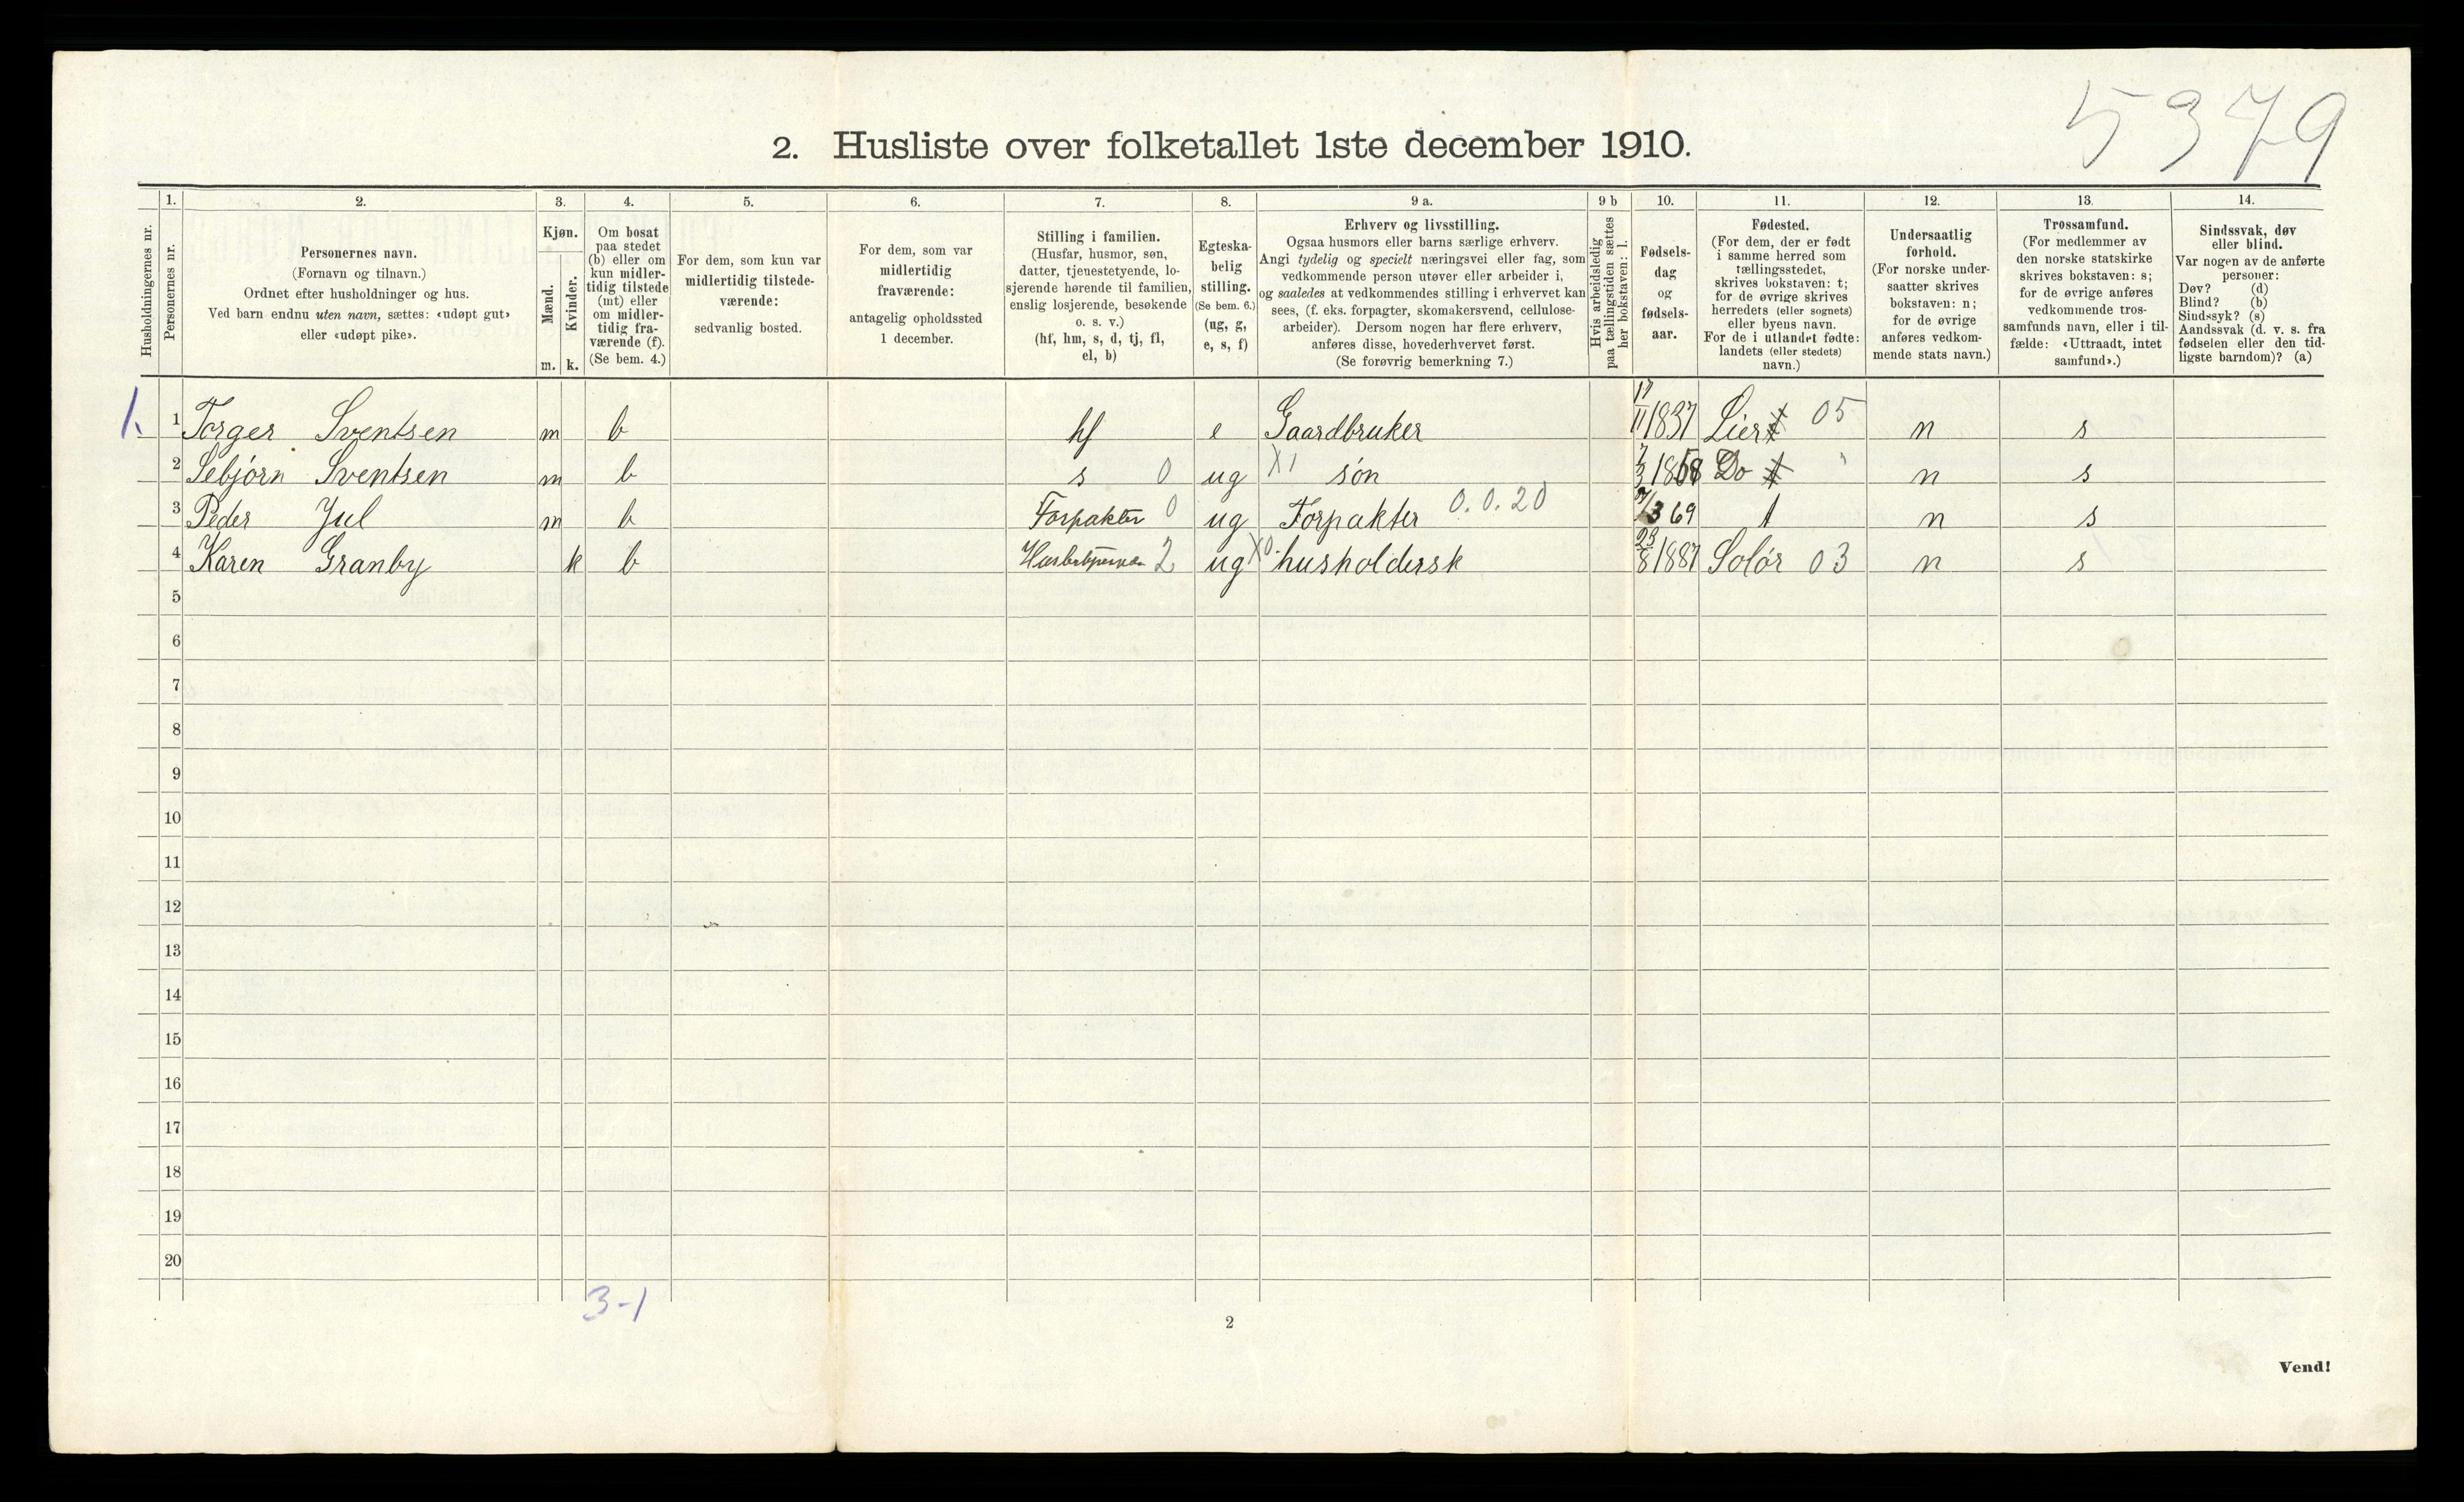 5379
2. Husliste over folketallet 1ste december 1910.
Husholdningernes nr.
1.
Personernes nr.
2.
Personernes navn.
(Fornavn og tilnavn.)
Ordnet efter husholdninger og hus.
Ved barn endnu uten navn, sættes: «udøpt gut»
eller «udøpt pike».
3.
Kjøn.
Mænd.
Kvinder.
m. k.
4.
Om bosat
paa stedet
(b) eller om
kun midler-
tidig tilstede
(mt) eller
om midler-
tidig fra-
værende (f).
(Se bem. 4.)
5.
For dem, som kun var
midlertidig tilstede-
værende:
sedvanlig bosted.
6.
For dem, som var
midlertidig
fraværende:
antagelig opholdssted
1 december.
7.
Stilling i familien.
(Husfar, husmor, søn,
datter, tjenestetyende, lo-
sjerende hørende til familien,
enslig losjerende, besøkende
o. s. v.)
(hf, hm, s, d, tj, fl,
el, b)
8.
Egteska-
belig
stilling.
(Se bem. 6.)
(ug, g,
e, s, f)
9 a.
Erhverv og livsstilling.
Ogsaa husmors eller barns særlige erhverv.
Angi tydelig og specielt næringsvei eller fag, som
vedkommende person utøver eller arbeider i,
og saaledes at vedkommendes stilling i erhvervet kan
sees, (f. eks. forpagter, skomakersvend, cellulose-
arbeider). Dersom nogen har flere erhverv,
anføres disse, hovederhvervet først.
(Se forøvrig bemerkning 7.)
9 b
Hvis arbeidsledig
paa tællingstiden sættes
her bokstaven: l.
10.
Fødsels-
dag
og
fødsels-
aar.
11.
Fødested.
(For dem, der er født
i samme herred som
tællingsstedet,
skrives bokstaven: t;
for de øvrige skrives
herredets (eller sognets)
eller byens navn.
For de i utlandet fødte:
landets (eller stedets)
navn.)
12.
Undersaatlig
forhold.
(For norske under-
saatter skrives
bokstaven: n;
for de øvrige
anføres vedkom-
mende stats navn.)
13.
Trossamfund.
(For medlemmer av
den norske statskirke
skrives bokstaven: s;
for de øvrige anføres
vedkommende tros-
samfunds navn, eller i til-
fælde: «Uttraadt, intet
samfund».)
14.
Sindssvak, døv
eller blind.
Var nogen av de anførte
personer:
Døv? (d)
Blind? (b)
Sindssyk? (s)
Aandssvak (d. v. s. fra
fødselen eller den tid-
ligste barndom)? (a)
1. 1 Torger Sventsen m b hf e Gaardbruker 17/11 1837 Lier t 05 n s
2 Sebjørn Sventsen m b s 0 ug X1 søn Do t " n s
3 Peder Jul m b Forpakter 0 ug Forpakter 0.0.20 69 t n s
4 Karen Granby k b 2 ug X0 husholdersk 23/8 1887 Solør 03 n s
5
6
7
8
9
10
11
12
13
14
15
16
17
18
19
20
3-1
2
Vend!